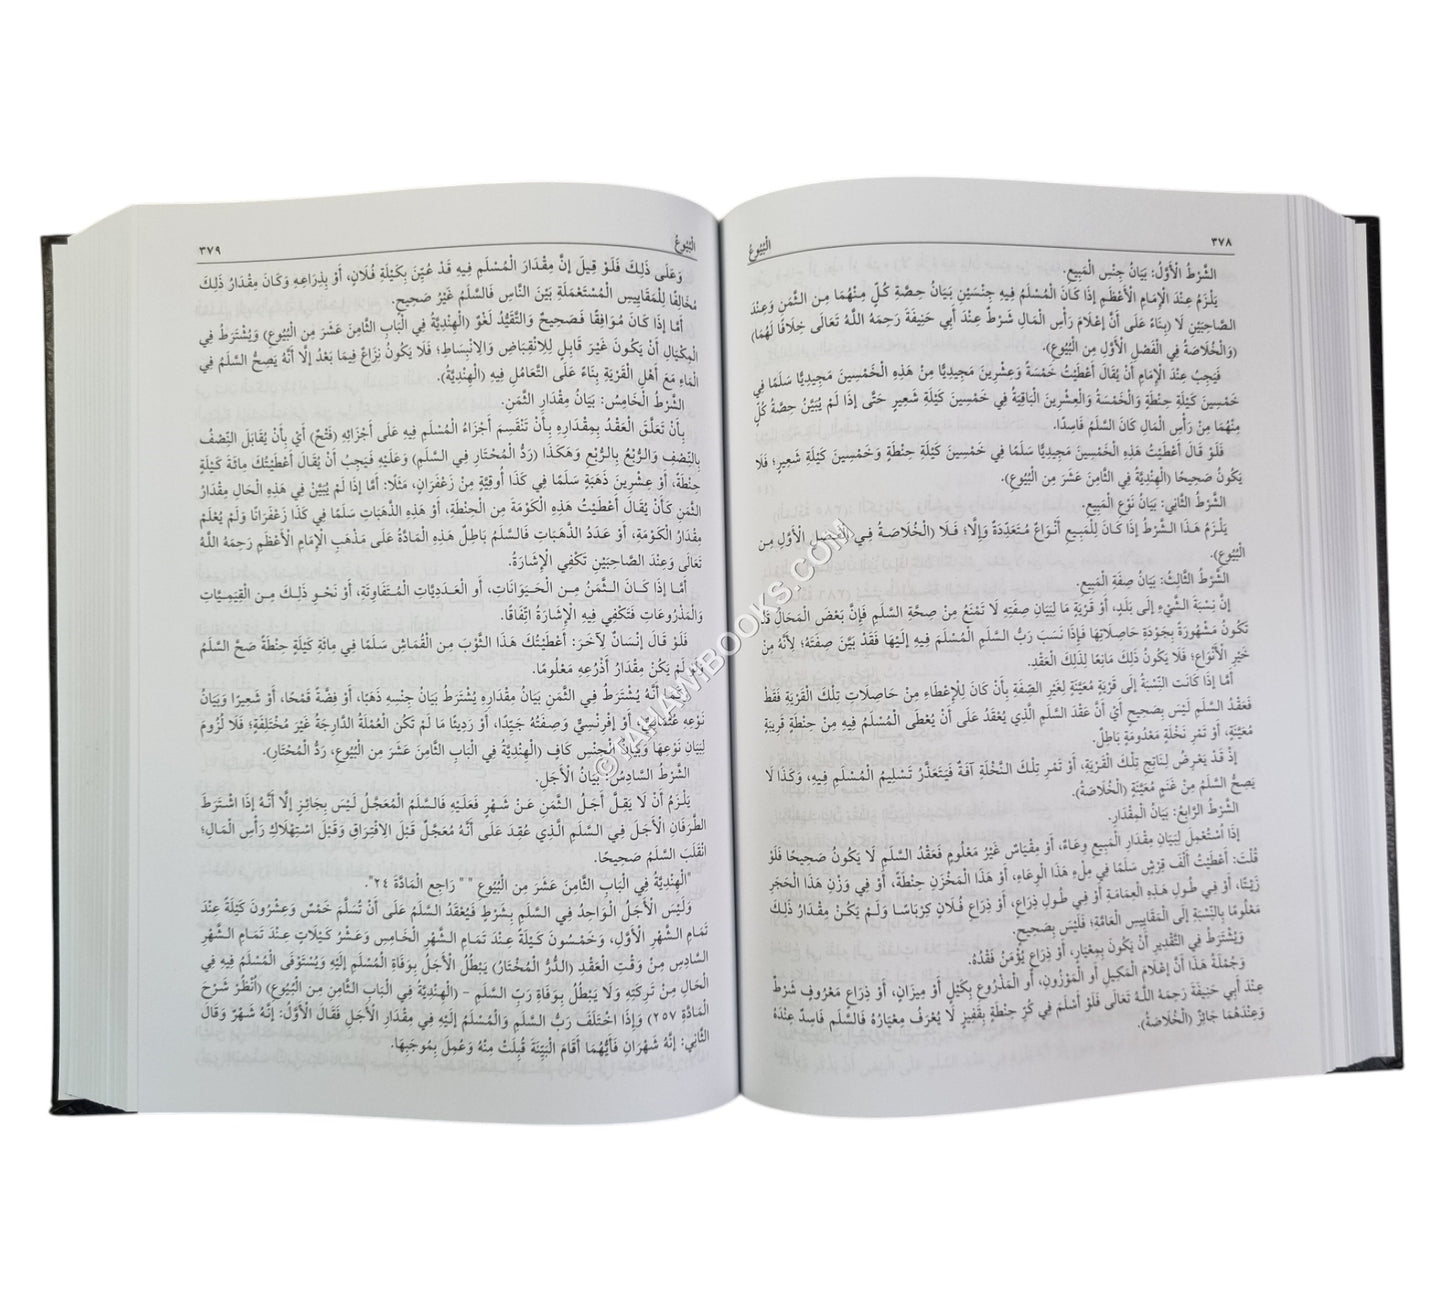 ٣٧٨
الْبُيُوعُ
الشَّرْطُ الْأَوَّلُ: بَيَانُ جِنْسِ الْمَبِيعِ.
يَلْزَمُ عِنْدَ الْإِمَامِ الْأَعْظَمِ إذَا كَانَ الْمُسْلَمُ فِيهِ جِنْسَيْنِ بَيَانُ حِصَّةِ كُلٍّ مِنْهُمَا مِنَ الثَّمَنِ وَعِنْدَ
الصَّاحِبَيْنِ لَا (بِنَاءً عَلَى أَنَّ إعْلَامَ رَأْسِ الْمَالِ شَرْطٌ عِنْدَ أَبِي حَنِيفَةَ رَحِمَهُ اللَّهُ تَعَالَى خِلَافًا لَهُمَا)
(وَالْخُلَاصَةُ فِي الْفَصْلِ الْأَوَّلِ مِنَ الْبُيُوعِ).
فَيَجِبُ عِنْدَ الْإِمَامِ أَنْ يُقَالَ أَعْطَيْتُ خَمْسَةً وَعِشْرِينَ مَجِيدِيًّا مِنْ هَذِهِ الْخَمْسِينَ مَجِيدِيًّا سَلَمًا فِي
خَمْسِينَ كَيْلَةِ حِنْطَةٍ وَالْخَمْسَةُ وَالْعِشْرِينَ الْبَاقِيَةُ فِي خَمْسِينَ كَيْلَةِ شَعِيرٍ حَتَّى إذَا لَمْ يُبَيَّنْ حِصَّةُ كُلٍّ
مِنْهُمَا مِنْ رَأْسِ الْمَالِ كَانَ السَّلَمُ فَاسِدًا.
فَلَوْ قَالَ أَعْطَيْتُ هَذِهِ الْخَمْسِينَ مَجِيدِيًّا سَلَمًا فِي خَمْسِينَ كَيْلَةِ حِنْطَةٍ وَخَمْسِينَ كَيْلَةِ شَعِيرٍ؛ فَلَا
يَكُونُ صَحِيحًا (الْهِنْدِيَّةُ فِي الثَّامِنَ عَشَرَ مِنَ الْبُيُوعِ).
الشَّرْطُ الثَّانِي: بَيَانُ نَوْعِ الْمَبِيعِ.
يَلْزَمُ هَذَا الشَّرْطُ إذَا كَانَ لِلْمَبِيعِ أَنْوَاعٌ مُتَعَدِّدَةٌ وَإِلَّا؛ فَلَا (الْخُلَاصَةُ فِي الْفَصْلِ الْأَوَّلِ مِنَ
الْبُيُوعِ).
الشَّرْطُ الثَّالِثُ: بَيَانُ صِفَةِ الْمَبِيعِ.
إنَّ نِسْبَةَ الشَّيْءِ إلَى بَلَدٍ، أَوْ قَرْيَةٍ مَا لِبَيَانِ صِفَتِهِ لَا تَمْنَعُ مِنْ صِحَّةِ السَّلَمِ فَإِنَّ بَعْضَ الْمَحَالِّ قَدْ
تَكُونُ مَشْهُورَةً بِجَوْدَةِ حَاصِلَاتِهَا فَإِذَا نَسَبَ رَبُّ السَّلَمِ الْمُسْلَمَ فِيهِ إلَيْهَا فَقَدْ بَيَّنَ صِفَتَهُ؛ لِأَنَّهُ مِنْ
خَيْرِ الْأَنْوَاعِ؛ فَلَا يَكُونُ ذَلِكَ مَانِعًا لِذَلِكَ الْعَقْدِ.
أَمَّا إذَا كَانَتِ النِّسْبَةُ إلَى قَرْيَةٍ مُعَيَّنَةٍ لِغَيْرِ الصِّفَةِ بِأَنْ كَانَ لِلْإِعْطَاءِ مِنْ حَاصِلَاتِ تِلْكَ الْقَرْيَةِ فَقَطْ
فَعَقْدُ السَّلَمِ لَيْسَ بِصَحِيحٍ أَيْ أَنَّ عَقْدَ السَّلَمِ الَّذِي يُعْقَدُ عَلَى أَنْ يُعْطَى الْمُسْلَمُ فِيهِ مِنْ حِنْطَةِ قَرْيَةٍ
مُعَيَّنَةٍ، أَوْ تَمْرِ نَخْلَةٍ مَعْدُومَةٍ بَاطِلٌ.
إذْ قَدْ يَعْرِضُ لِنَاتِجِ تِلْكَ الْقَرْيَةِ، أَوْ تَمْرِ تِلْكَ النَّخْلَةِ آفَةٌ فَيَتَعَذَّرُ تَسْلِيمُ الْمُسْلَمِ فِيهِ، وَكَذَا لَا
يَصِحُّ السَّلَمُ مِنْ غَنَمٍ مُعَيَّنَةٍ (الْخُلَاصَةُ).
الشَّرْطُ الرَّابِعُ: بَيَانُ الْمِقْدَارِ.
إذَا اُسْتُعْمِلَ لِبَيَانِ مِقْدَارِ الْمَبِيعِ وِعَاءٌ، أَوْ مِقْيَاسٌ غَيْرُ مَعْلُومٍ فَعَقْدُ السَّلَمِ لَا يَكُونُ صَحِيحًا فَلَوْ
قُلْتَ: أَعْطَيْتُ أَلْفَ قِرْشٍ سَلَمًا فِي مِلْءِ هَذَا الْوِعَاءِ، أَوْ هَذَا الْمَخْزَنِ حِنْطَةً، أَوْ فِي وَزْنِ هَذَا الْحَجَرِ
زَيْتًا، أَوْ فِي طُولِ هَذِهِ الْعِمَامَةِ أَوْ فِي طُولِ ذِرَاعٍ، أَوْ ذِرَاعِ فُلَانٍ كِرْبَاسًا وَلَمْ يَكُنْ مِقْدَارُ ذَلِكَ
مَعْلُومًا بِالنِّسْبَةِ إلَى الْمَقَايِيسِ الْعَامَّةِ؛ فَلَيْسَ بِصَحِيحٍ.
وَيُشْتَرَطُ فِي التَّقْدِيرِ أَنْ يَكُونَ بِمِعْيَارٍ، أَوْ ذِرَاعٍ يُؤْمَنُ فَقْدُهُ.
وَجُمْلَةُ هَذَا أَنَّ إعْلَامَ الْمَكِيلِ أَوِ الْمَوْزُونِ، أَوِ الْمَذْرُوعِ بِكَيْلٍ أَوْ مِيزَانٍ، أَوْ ذِرَاعٍ مَعْرُوفٍ شَرْطٌ
عِنْدَ أَبِي حَنِيفَةَ رَحِمَهُ اللَّهُ تَعَالَى فَلَوْ أَسْلَمَ فِي كُرِّ حِنْطَةٍ بِقَفِيزٍ لَا يُعْرَفُ مِعْيَارُهُ فَالسَّلَمُ فَاسِدٌ عِنْدَهُ
وَعِنْدَهُمَا جَائِزٌ (الْخُلَاصَةُ).
الْبُيُوعُ
٣٧٩
وَعَلَى ذَلِكَ فَلَوْ قِيلَ إنَّ مِقْدَارَ الْمُسْلَمِ فِيهِ قَدْ عُيِّنَ بِكَيْلَةِ فُلَانٍ، أَوْ بِذِرَاعِهِ وَكَانَ مِقْدَارُ ذَلِكَ
مُخَالِفًا لِلْمَقَايِيسِ الْمُسْتَعْمَلَةِ بَيْنَ النَّاسِ فَالسَّلَمُ غَيْرُ صَحِيحٍ.
أَمَّا إذَا كَانَ مُوَافِقًا فَصَحِيحٌ وَالتَّقَيُّدُ لَغْوٌ (الْهِنْدِيَّةُ فِي الْبَابِ الثَّامِنَ عَشَرَ مِنَ الْبُيُوعِ) وَيُشْتَرَطُ فِي
الْمِكْيَالِ أَنْ يَكُونَ غَيْرَ قَابِلٍ لِلِانْقِبَاضِ وَالِانْبِسَاطِ؛ فَلَا يَكُونُ نِزَاعٌ فِيمَا بَعْدُ إلَّا أَنَّهُ يَصِحُّ السَّلَمُ فِي
الْمَاءِ مَعَ أَهْلِ الْقَرْيَةِ بِنَاءً عَلَى التَّعَامُلِ فِيهِ (الْهِنْدِيَّةُ).
الشَّرْطُ الْخَامِسُ: بَيَانُ مِقْدَارِ الثَّمَنِ.
بِأَنْ تَعَلَّقَ الْعَقْدُ بِمِقْدَارِهِ بِأَنْ تَنْقَسِمَ أَجْزَاءُ الْمُسْلَمِ فِيهِ عَلَى أَجْزَائِهِ (فَتْحٌ) أَيْ بِأَنْ يُقَابَلَ النِّصْفُ
بِالنِّصْفِ وَالرُّبْعُ بِالرُّبْعِ وَهَكَذَا (رَدُّ الْمُحْتَارِ فِي السَّلَمِ) وَعَلَيْهِ فَيَجِبُ أَنْ يُقَالَ أَعْطَيْتُكَ مِائَةَ كَيْلَةِ
حِنْطَةً، أَوْ عِشْرِينَ ذَهَبَةٍ سَلَمًا فِي كَذَا أُوقِيَّةٍ مِنْ زَعْفَرَانٍ، مَثَلًا: أَمَّا إذَا لَمْ يُبَيَّنْ فِي هَذِهِ الْحَالِ مِقْدَارُ
الثَّمَنِ كَأَنْ يُقَالَ أَعْطَيْتُ هَذِهِ الْكَوْمَةَ مِنَ الْحِنْطَةِ، أَوْ هَذِهِ الذَّهَبَاتِ سَلَمًا فِي كَذَا زَعْفَرَانًا وَلَمْ يُعْلَمْ
مِقْدَارُ الْكَوْمَةِ، أَوْ عَدَدُ الذَّهَبَاتِ فَالسَّلَمُ بَاطِلٌ هَذِهِ الْمَادَّةُ عَلَى مَذْهَبِ الْإِمَامِ الْأَعْظَمِ رَحِمَهُ اللَّهُ
تَعَالَى وَعِنْدَ الصَّاحِبَيْنِ تَكْفِي الْإِشَارَةُ.
أَمَّا إذَا كَانَ الثَّمَنُ مِنَ الْحَيَوَانَاتِ، أَوِ الْعَدَدِيَّاتِ الْمُتَفَاوِتَةِ، أَوْ نَحْوِ ذَلِكَ مِنَ الْقِيَمِيَّاتِ
وَالْمَذْرُوعَاتِ فَتَكْفِي فِيهِ الْإِشَارَةُ اتِّفَاقًا.
فَلَوْ قَالَ إنْسَانٌ لِآخَرَ: أَعْطَيْتُكَ هَذَا الثَّوْبَ مِنَ الْقُمَاشِ سَلَمًا فِي مِائَةِ كَيْلَةِ حِنْطَةً صَحَّ السَّلَمُ
وَلَوْ لَمْ يَكُنْ مِقْدَارُ أَذْرُعِهِ مَعْلُومًا.
ثُمَّ أَنَّهُ يُشْتَرَطُ فِي الثَّمَنِ بَيَانُ مِقْدَارِهِ يُشْتَرَطُ بَيَانُ جِنْسِهِ ذَهَبًا، أَوْ فِضَّةً قَمْحًا، أَوْ شَعِيرًا وَبَيَانُ
نَوْعِهِ عُثْمَانِيٍّ أَوْ إفْرِنْسِيٍّ وَصِفَتُهُ جَيِّدًا، أَوْ رَدِيئًا مَا لَمْ تَكُنِ الْعُمْلَةُ الدَّارِجَةُ غَيْرَ مُخْتَلِفَةٍ؛ فَلَا لُزُومَ
لِبَيَانِ نَوْعِهَا وَبَيَانُ الْجِنْسِ كَافٍ (الْهِنْدِيَّةُ فِي الْبَابِ الثَّامِنَ عَشَرَ مِنَ الْبُيُوعِ، رَدُّ الْمُحْتَارِ).
الشَّرْطُ السَّادِسُ: بَيَانُ الْأَجَلِ.
يَلْزَمُ أَنْ لَا يَقِلَّ أَجَلُ الثَّمَنِ عَنْ شَهْرٍ فَعَلَيْهِ فَالسَّلَمُ الْمُعَجَّلُ لَيْسَ بِجَائِزٍ إلَّا أَنَّهُ إذَا اشْتَرَطَ
الطَّرَفَانِ الْأَجَلَ فِي السَّلَمِ الَّذِي عُقِدَ عَلَى أَنَّهُ مُعَجَّلٌ قَبْلَ الِافْتِرَاقِ وَقَبْلَ اسْتِهْلَاكِ رَأْسِ الْمَالِ؛
انْقَلَبَ السَّلَمُ صَحِيحًا.
"الْهِنْدِيَّةُ فِي الْبَابِ الثَّامِنَ عَشَرَ مِنَ الْبُيُوعِ " " رَاجِعِ الْمَادَّةَ ٢٤".
وَلَيْسَ الْأَجَلُ الْوَاحِدُ فِي السَّلَمِ بِشَرْطٍ فَيُعْقَدُ السَّلَمُ عَلَى أَنْ تُسَلَّمَ خَمْسٌ وَعِشْرُونَ كَيْلَةً عِنْدَ
تَمَامِ الشَّهْرِ الْأَوَّلِ، وَخَمْسُونَ كَيْلَةً عِنْدَ تَمَامِ الشَّهْرِ الْخَامِسِ وَعَشْرُ كَيْلَاتٍ عِنْدَ تَمَامِ الشَّهْرِ
السَّادِسِ مِنْ وَقْتِ الْعَقْدِ (الدُّرُّ الْمُخْتَارُ) يَبْطُلُ الْأَجَلُ بِوَفَاةِ الْمُسْلَمِ إلَيْهِ وَيُسْتَوْفَى الْمُسْلَمُ فِيهِ فِي
الْحَالِ مِنْ تَرِكَتِهِ وَلَا يَبْطُلُ بِوَفَاةِ رَبِّ السَّلَمِ - (الْهِنْدِيَّةُ فِي الْبَابِ الثَّامِنِ مِنَ الْبُيُوعِ) (اُنْظُرْ شَرْحَ
الْمَادَّةِ ٢٥٧) وَإِذَا اخْتَلَفَ رَبُّ السَّلَمِ وَالْمُسْلَمُ إلَيْهِ فِي مِقْدَارِ الْأَجَلِ فَقَالَ الْأَوَّلُ: إنَّهُ شَهْرٌ وَقَالَ
الثَّانِي: إنَّهُ شَهْرَانِ فَأَيُّهُمَا أَقَامَ الْبَيِّنَةَ قُبِلَتْ مِنْهُ وَعُمِلَ بِمُوجَبِهَا.
©TAHAMIBOOKS.COM